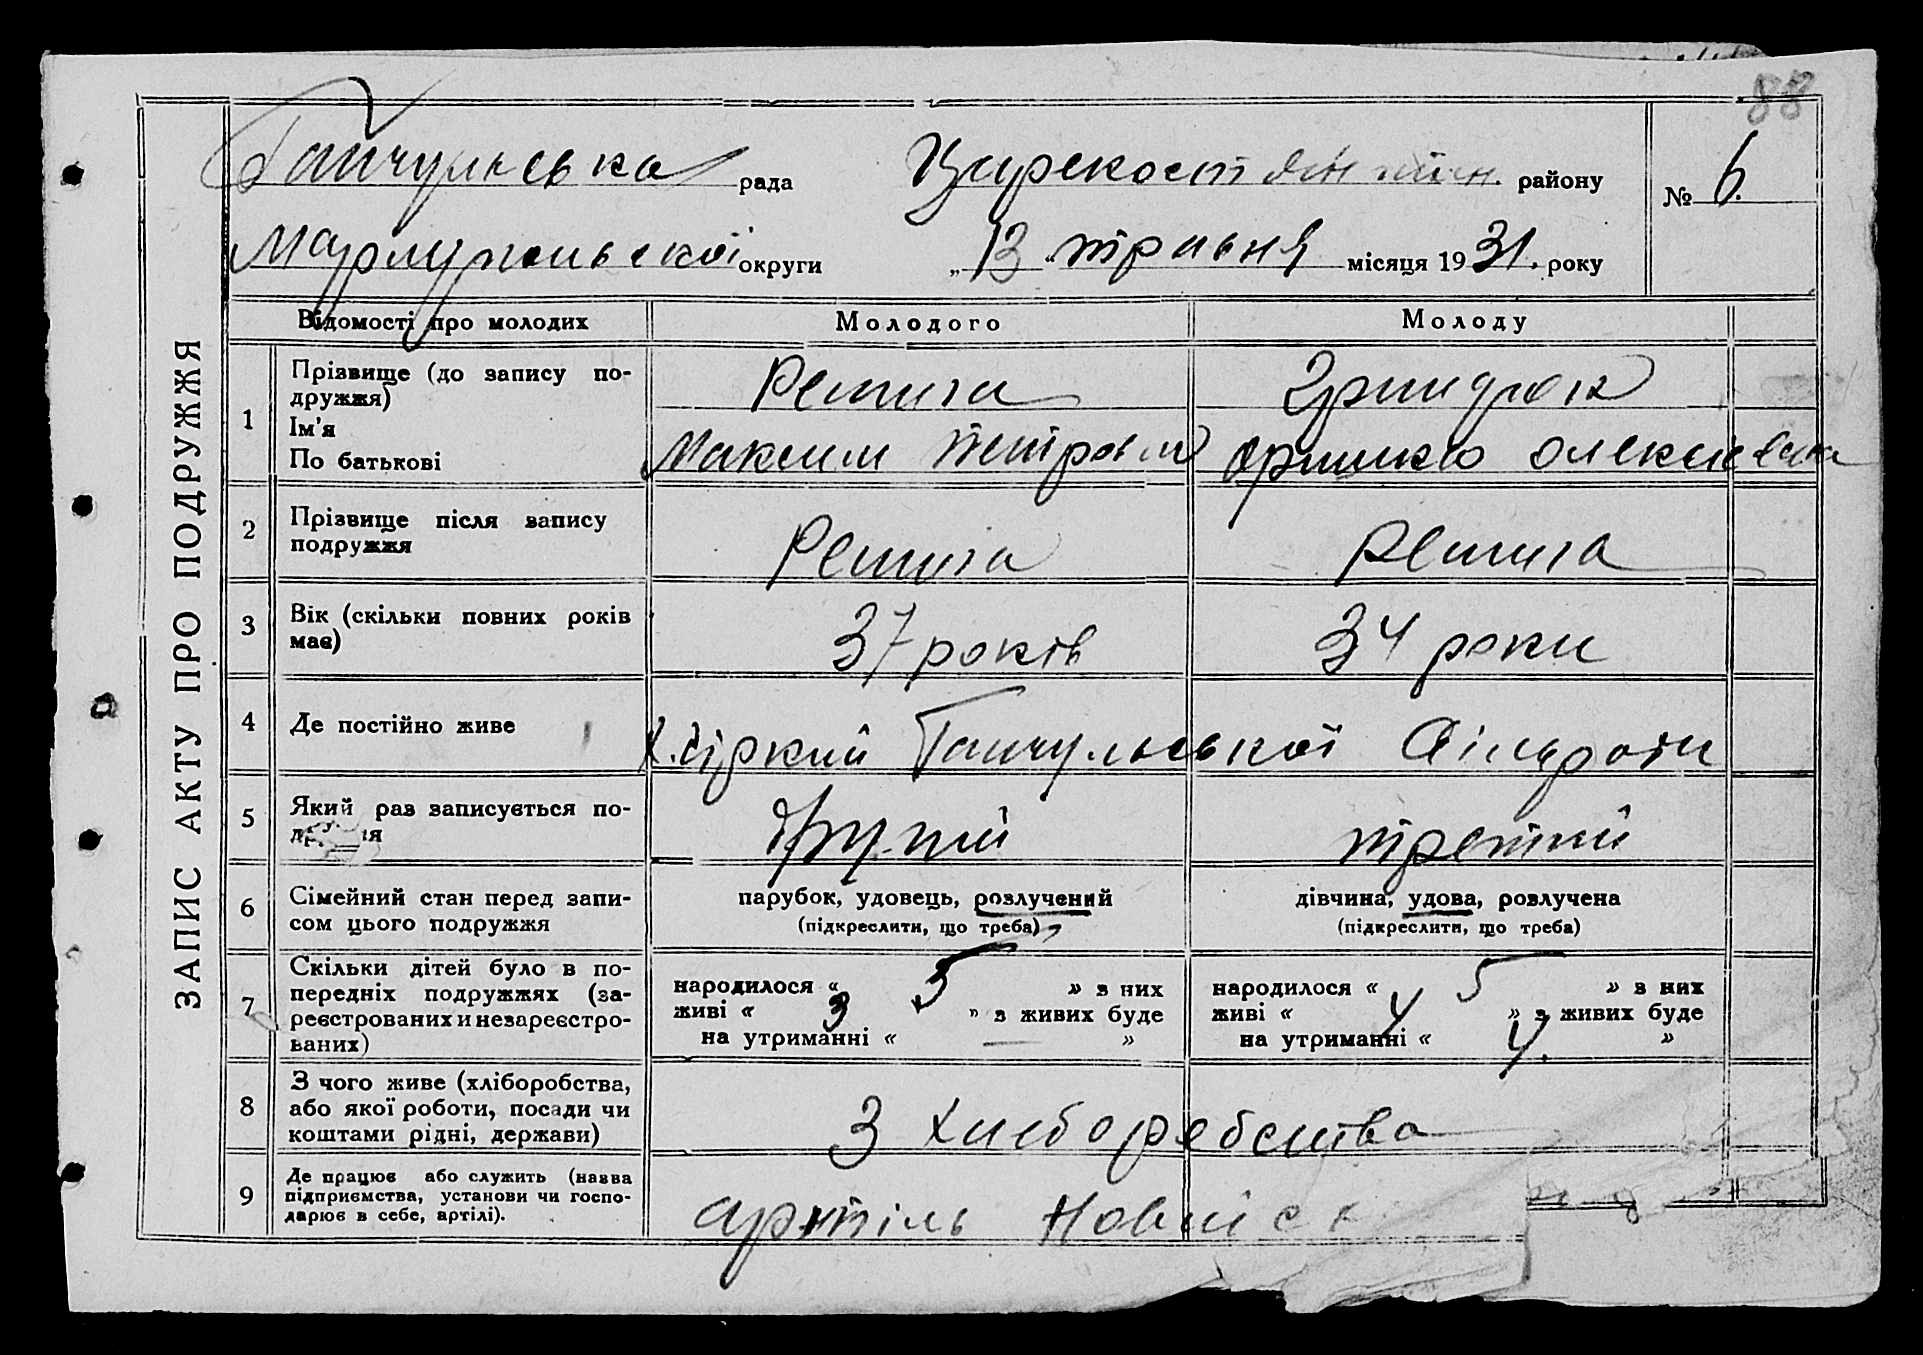 88
Гайчульська рада Царекостянтин. району № 6.
Маріупільської округи „13" травня місяця 1931. року
ЗАПИС АКТУ ПРО ПОДРУЖЖЯ
Відомості про молодих Молодого Молоду
1 Прізвище (до запису по-
дружжя)
Ім'я
По батькові
Ремига
Максим Петрович
Гриндюк
Оришка Олексіевна
2 Прізвище після запису
подружжя
Ремига Ремига
3 Вік (скільки повних років
має)
37 років 34 роки
4 Де постійно живе
х. Гайчульської Сільради
5 Який раз записується по-
другий третий
6 Сімейний стан перед запи-
сом цього подружжя
парубок, удовець, розлучений
(підкреслити, що треба)
дівчина, удова, розлучена
(підкреслити, що треба)
7 Скільки дітей було в по-
передніх подружжях (за-
реєстрованих и незареєстро-
ваних)
народилося « 5 » з них
живі « 3 » з живих буде
на утриманні « — »
народилося « 5 » з них
живі « 4 » з живих буде
на утриманні « 4. »
8 З чого живе (хліборобства,
або якої роботи, посади чи
коштами рідні, держави)
З хлиборобства
9 Де працює або служить (назва
підприємства, установи чи госпо-
дарює в себе, артілі).
артіль